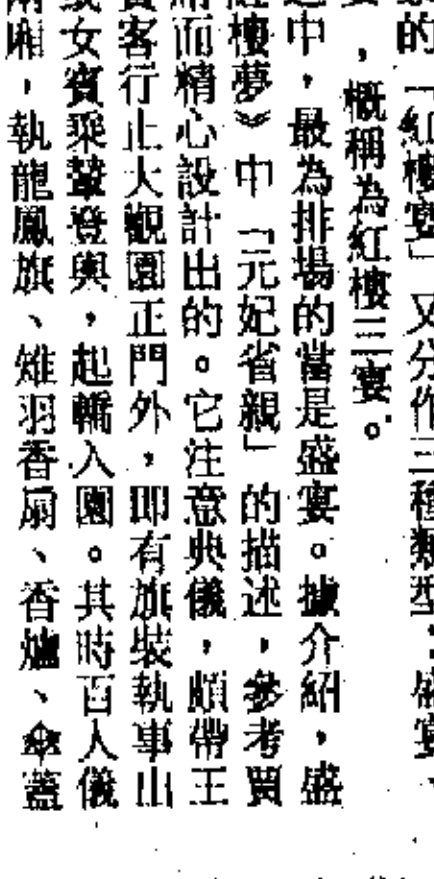 的「紅樓宴」又分作三種類型：盛宴、
，概稱為紅樓三宴。
中，最為排場的當是盛宴。據介紹，盛
紅樓夢》中「元妃省親」的描述，參考賈
而精心設計出的。它注意典儀，頗帶王
賓客行止大觀園正門外，即有旗裝執事山
或女賓乘輦登輿，起轎入園。其時百人儀
兩廂，執龍鳳旗、雉羽香扇、香爐、傘蓋